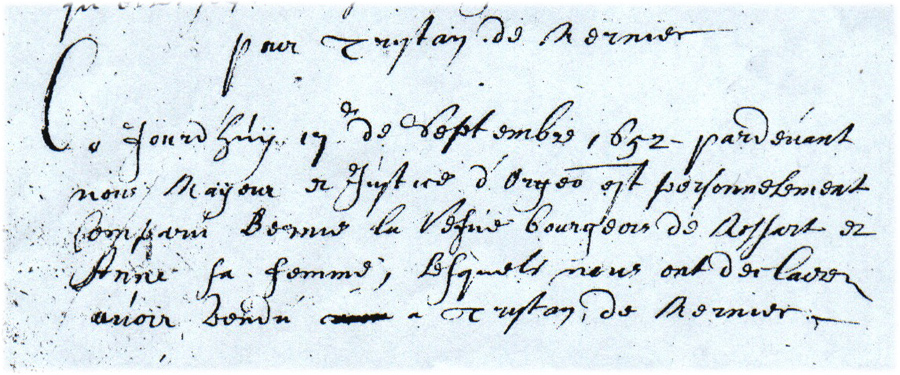 pour Tristan de Mernier
Ce Jourdhuy 17e de Septembre 1652 pardevant
nous Mayeur et Justice d'Orgeo est personnelement
Comparu la Vefue bourgeois de Rossart et
Anne sa femme, lesquels nous ont declarer
avoir Vendu a Tristan de Mernier